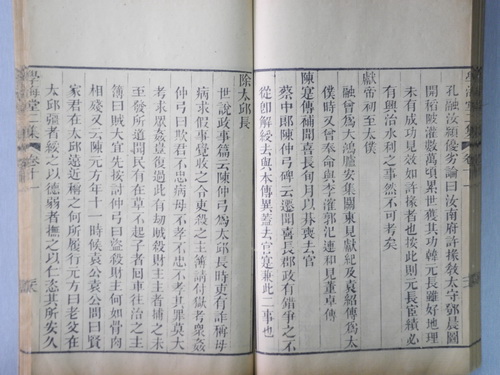 學海堂二集
卷十一
孔融汝潁優劣論曰汝南府許掾教太守鄧晨圖
開稻陂灌數萬頃累世獲其功韓元長雖好地理
未有成功見效如許掾者也按此則元長宦績必
有興治水利之事然不可考矣
獻帝初至太僕
融曾為大鴻臚安集關東見獻紀及袁紹傳為太
僕時又曾奉命與李傕郭汜連和見董卓傳
陳寔傳補聞喜長旬月以朞喪去官
蔡中郎陳仲弓碑云遷聞喜長郡政有錯爭之不
從卽解綬去與本傳異蓋去官寔兼此二事也
除太邱長
世說政事篇云陳仲弓為太邱長時吏有詐稱母
病求假事覺收之令吏殺之主簿請付獄考衆姦
仲弓曰欺君不忠病母不孝不忠不孝其罪莫大
考求衆姦豈復過此有劫賊殺財主主者捕之未
至發所道聞民有在草不起子者回車往治之主
簿曰賊大宜先按討仲弓曰盜殺財主何如骨肉
相殘又云陳元方年十一時候袁公袁公問曰賢
家君在太邱遠近稱之何所履行元方曰老父在
太邱彊者綏之以德弱者撫之以仁恣其所安久
學海堂二集
卷十一